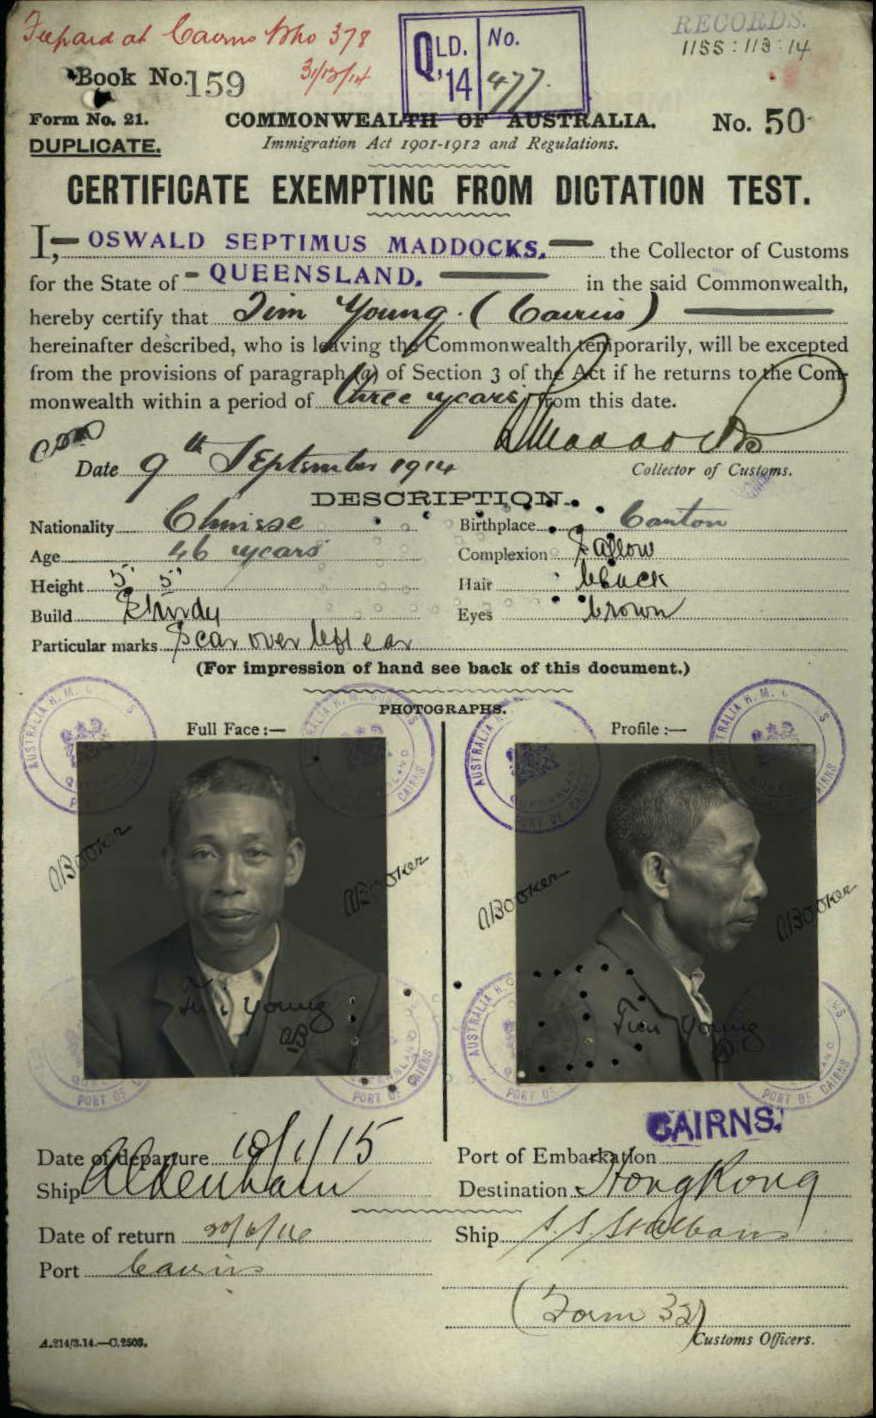 RECORDS.
1155:113:14
QLD. No.
'14 477.
31/12/14
Book No. 159
Form No. 21. COMMONWEALTH OF AUSTRALIA. No. 50
DUPLICATE. Immigration Act 1901-1912 and Regulations.
CERTIFICATE EXEMPTING FROM DICTATION TEST.
I, OSWALD SEPTIMUS MADDOCKS, the Collector of Customs
for the State of QUEENSLAND. in the said Commonwealth,
hereby certify that Tim Young (Cairns)
hereinafter described, who is leaving the Commonwealth temporarily, will be excepted
from the provisions of paragraph (a) of Section 3 of the Act if he returns to the Com-
monwealth within a period of three years from this date.
Date 9th September 1914 Collector of Customs.
DESCRIPTION.
Nationality Chinese Birthplace Canton
Age 46 years Complexion Sallow
Height 5' 5" Hair black
Build Sturdy Eyes brown
Particular marks Scar over left ear
(For impression of hand see back of this document.)
PHOTOGRAPHS.
Full Face:— Profile:—
ABooker ABooker ABooker ABooker
Tim Young Tim Young
PORT OF CAIRNS
CAIRNS.
Date of departure 10/1/15 Port of Embarkation
Ship Aldenham Destination HongKong
Date of return 20/6/16 Ship S.S. St Albans
Port Cairns
(Form 32)
A.214/3.14.—C.2503. Customs Officers.